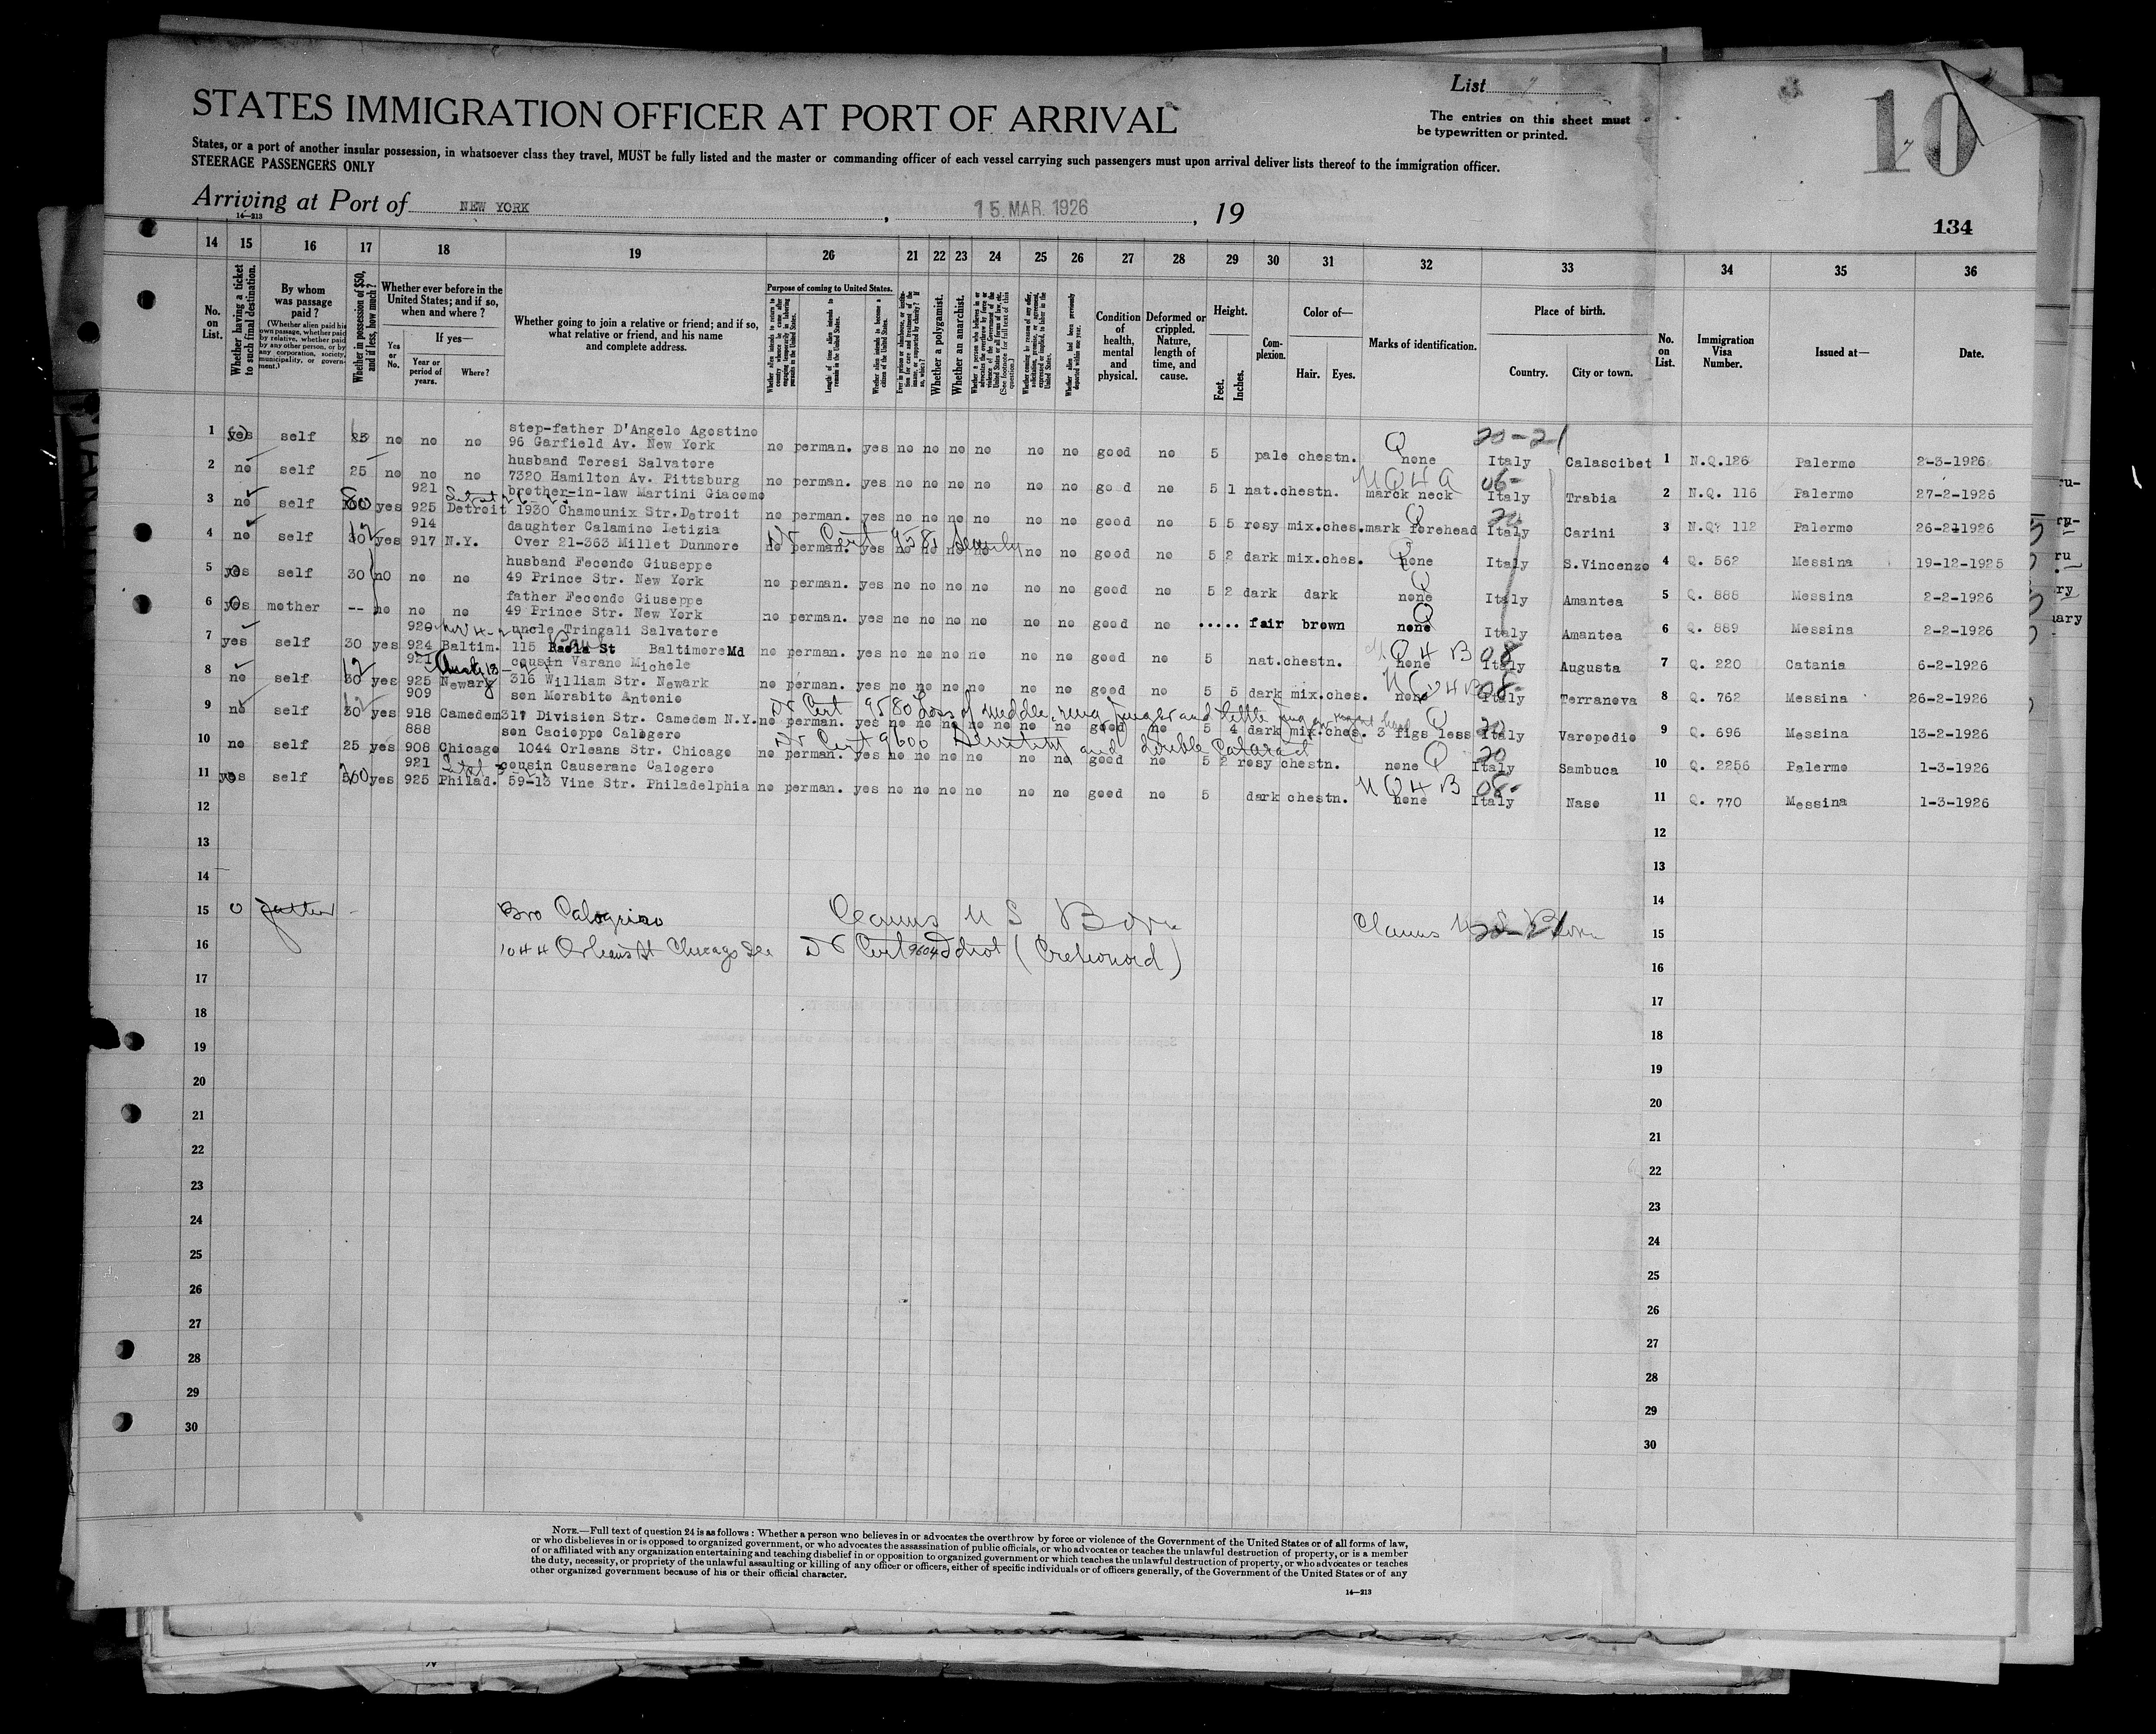 List
STATES IMMIGRATION OFFICER AT PORT OF ARRIVAL
The entries on this sheet must
be typewritten or printed.
10
States, or a port of another insular possession, in whatsoever class they travel, MUST be fully listed and the master or commanding officer of each vessel carrying such passengers must upon arrival deliver lists thereof to the immigration officer.
STEERAGE PASSENGERS ONLY
Arriving at Port of NEW YORK, 15. MAR. 1926, 19
14—213
134
14 15 16 17 18 19 20 21 22 23 24 25 26 27 28 29 30 31 32 33 34 35 36
No. on List.
Whether having a ticket to such final destination.
By whom was passage paid?
(Whether alien paid his own passage, whether paid by relative, whether paid by any other person, or by any corporation, society, municipality, or government.)
Whether in possession of $50, and if less, how much?
Whether ever before in the United States; and if so, when and where?
Yes or No.
If yes—
Year or period of years.
Where?
Whether going to join a relative or friend; and if so, what relative or friend, and his name and complete address.
Purpose of coming to United States.
Whether alien intends to return to country whence he came after engaging temporarily in laboring pursuits in the United States.
Length of time alien intends to remain in the United States.
Whether alien intends to become a citizen of the United States.
Whether a polygamist.
Whether an anarchist.
Condition of health, mental and physical.
Deformed or crippled. Nature, length of time, and cause.
Height.
Feet.
Inches.
Complexion.
Color of—
Hair.
Eyes.
Marks of identification.
Place of birth.
Country.
City or town.
No. on List.
Immigration Visa Number.
Issued at—
Date.
step-father D'Angelo Agostino
1 yes self 25 no no no 96 Garfield Av. New York no perman. yes no no no no no no good no 5 pale chestn. none Italy Calascibet 1 N.Q.126 Palermo 2-3-1926
20-21
husband Teresi Salvatore
2 no self 25 no no no 7320 Hamilton Av. Pittsburg no perman. yes no no no no no no good no 5 1 nat.chestn. marck neck Italy Trabia 2 N.Q. 116 Palermo 27-2-1926
921 brother-in-law Martini Giacomo
3 no self yes 925 Detroit 1930 Chamounix Str.Detroit no perman. yes no no no no no no good no 5 5 rosy mix.ches. mark forehead Italy Carini 3 N.Q? 112 Palermo 26-2-1926
914 daughter Calamino Letizia
4 no self 30 yes 917 N.Y. Over 21-363 Millet Dunmore no perman. yes no no no no no no good no 5 2 dark mix.ches. none Italy S.Vincenzo 4 Q. 562 Messina 19-12-1925
Dr Cert 9581 Senility
husband Fecondo Giuseppe
5 yes self 30 no no no 49 Prince Str. New York no perman. yes no no no no no no good no 5 2 dark dark none Italy Amantea 5 Q. 888 Messina 2-2-1926
father Fecondo Giuseppe
6 yes mother -- no no no 49 Prince Str. New York no perman. yes no no no no no no good no ..... fair brown none Italy Amantea 6 Q. 889 Messina 2-2-1926
920 uncle Tringali Salvatore
7 yes self 30 yes 924 Baltim. 115 St Baltimore Md no perman. yes no no no no no no good no 5 nat.chestn. none Italy Augusta 7 Q. 220 Catania 6-2-1926
921 cousin Varano Michele
8 no self 30 yes 925 Newark 316 William Str. Newark no perman. yes no no no no no no good no 5 5 dark mix.ches. none Italy Terranova 8 Q. 762 Messina 26-2-1926
909 son Morabito Antonio
9 no self 30 yes 918 Camedem 317 Division Str. Camedem N.Y. no perman. yes no no no no no no good no 5 4 dark mix.ches. 3 figs less Italy Varopodio 9 Q. 696 Messina 13-2-1926
Dr Cert 9580 Loss of middle, ring finger and little finger right hand
888 son Cacioppo Calogero
10 no self 25 yes 908 Chicago 1044 Orleans Str. Chicago no perman. yes no no no no no no good no 5 2 rosy chestn. none Italy Sambuca 10 Q. 2256 Palermo 1-3-1926
Dr Cert 9600 Senility and double Cataract
921 cousin Causerano Calogero
11 yes self yes 925 Philad. 59-13 Vine Str. Philadelphia no perman. yes no no no no no no good no 5 dark chestn. none Italy Naso 11 Q. 770 Messina 1-3-1926
12 12
13 13
14 14
15 0 father - Bro Calogrino Claims U S Born Claims U S Born 15
1044 Orleans St Chicago Ill Dr Cert 9604 Idiot (Cretionoid)
16 16
17 17
18 18
19 19
20 20
21 21
22 22
23 23
24 24
25 25
26 26
27 27
28 28
29 29
30 30
NOTE.—Full text of question 24 is as follows: Whether a person who believes in or advocates the overthrow by force or violence of the Government of the United States or of all forms of law,
or who disbelieves in or is opposed to organized government, or who advocates the assassination of public officials, or who advocates or teaches the unlawful destruction of property, or is a member
of or affiliated with any organization entertaining and teaching disbelief in or opposition to organized government or which teaches the unlawful destruction of property, or who advocates or teaches
the duty, necessity, or propriety of the unlawful assaulting or killing of any officer or officers, either of specific individuals or of officers generally, of the Government of the United States or of any
other organized government because of his or their official character.
14—213